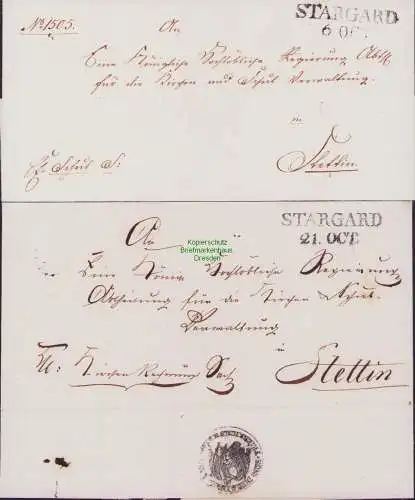 STARGARD
6 OCT
No 1505.
An
Eine Königliche Hochlöbliche Regierung Abth
für die Kirchen und Schul Verwaltung.
in
Stettin.
Schul S:
STARGARD
21. OCT
An
Kopierschutz
Briefmarkenhaus
Dresden
Eine König Hochlöbliche Regierung
Abtheilung für die Kirchen Schul
Verwaltung
in
Kirchen Rechnungs Sach
Stettin